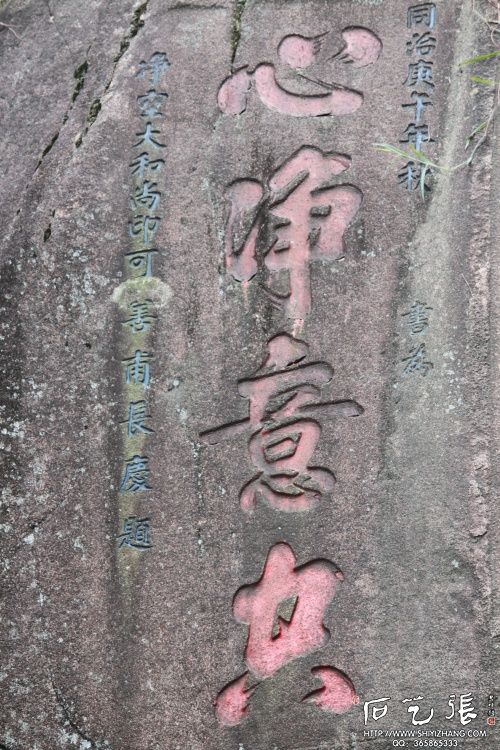 同治庚午年秋 書為
心净意共
净空大和尚印可 善甫長慶題
石艺張
HTTP://WWW.SHIYIZHANG.COM
QQ: 365865333